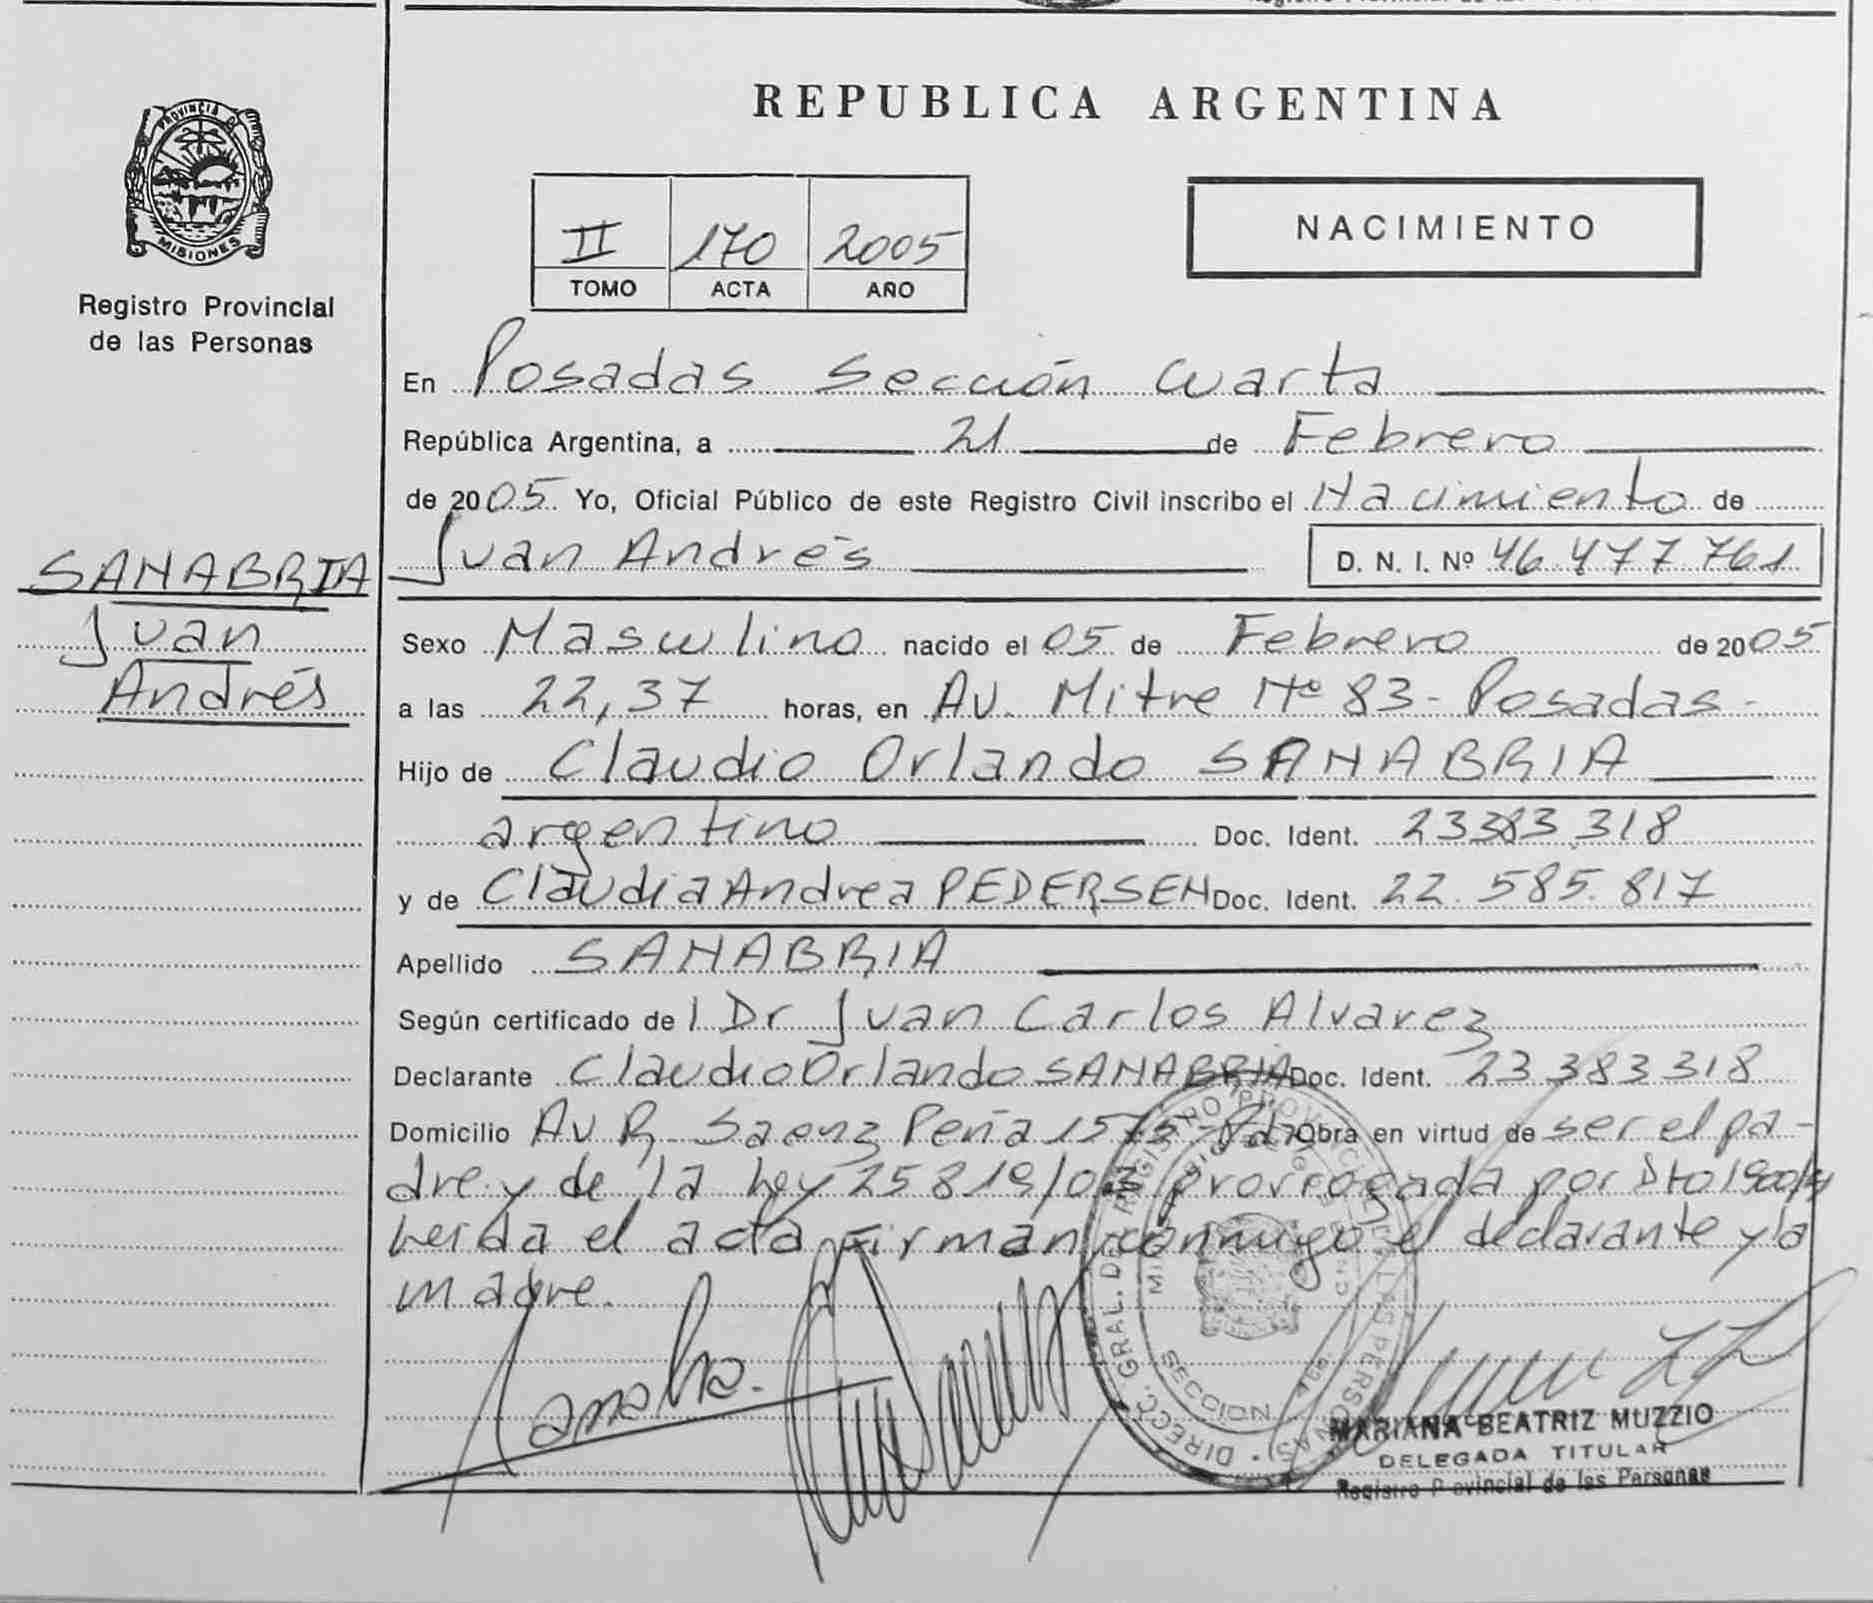 PROVINCIA DE
MISIONES
Registro Provincial
de las Personas
SANABRIA
Juan
Andrés
REPUBLICA ARGENTINA
II 170 2005
TOMO ACTA AÑO
NACIMIENTO
En Posadas Sección Cuarta
República Argentina, a 21 de Febrero
de 2005 Yo, Oficial Público de este Registro Civil inscribo el Nacimiento de
Juan Andrés D. N. I. Nº 46.477.761
Sexo Masculino nacido el 05 de Febrero de 2005
a las 22,37 horas, en Av. Mitre Nº 83 - Posadas -
Hijo de Claudio Orlando SANABRIA
argentino Doc. Ident. 23383.318
y de Claudia Andrea PEDERSEN Doc. Ident. 22.585.817
Apellido SANABRIA
Según certificado del Dr Juan Carlos Alvarez
Declarante Claudio Orlando SANABRIA Doc. Ident. 23 383 318
Domicilio Av R. Saenz Peña Obra en virtud de ser el pa-
dre y de la Ley 25819/03 prorrogada por Dto 1900/4
Leída el acta firman conmigo el declarante y la
madre.
DIRECC. GRAL. DE REGISTRO PROVINCIAL DE LAS PERSONAS
SECCION 4ta.
MARIANA BEATRIZ MUZZIO
DELEGADA TITULAR
Registro Provincial de las Personas